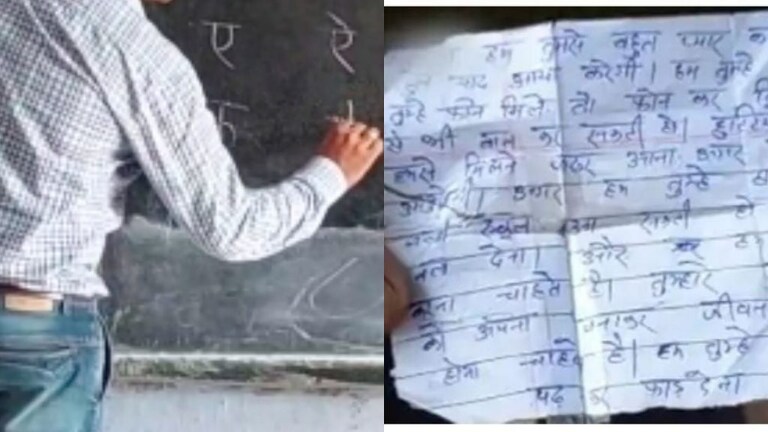 ए ऐ
हम तुमसे बहुत प्यार
याद आया करेगी। हम तुम्हे
तुम्हे फोन मिले तो फोन कर
से भी बात कर सकती हो।
मिलने जरूर आना अगर
आओगी। अगर हम तुम्हे
स्कूल आ सकती हो
देना। और
चाहते है। तुम्हारे
को अपना बनाकर जीवन
होना चाहते है। हम तुम्हे
पढ़ कर फाड़ देना